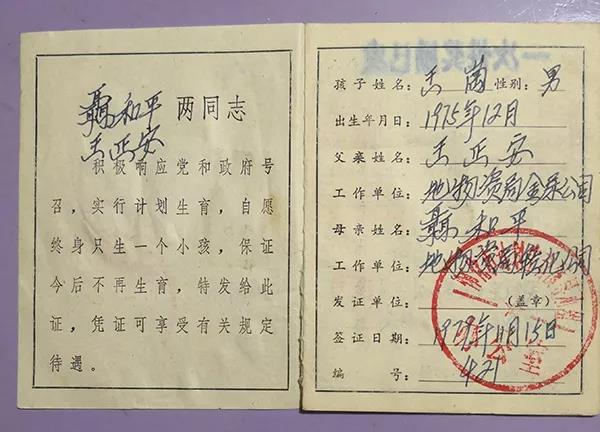 聂和平 两同志
王正安
积极响应党和政府号
召，实行计划生育，自愿
终身只生一个小孩，保证
今后不再生育，特发给此
证，凭证可享受有关规定
待遇。
孩子姓名：王 性别：男
出生年月日：1975年12月
父亲姓名：王正安
工作单位：地物资局金属公司
母亲姓名：聂和平
工作单位：地物资局轻化公司
发证单位：（盖章）
签证日期：1979年11月15日
编号：421